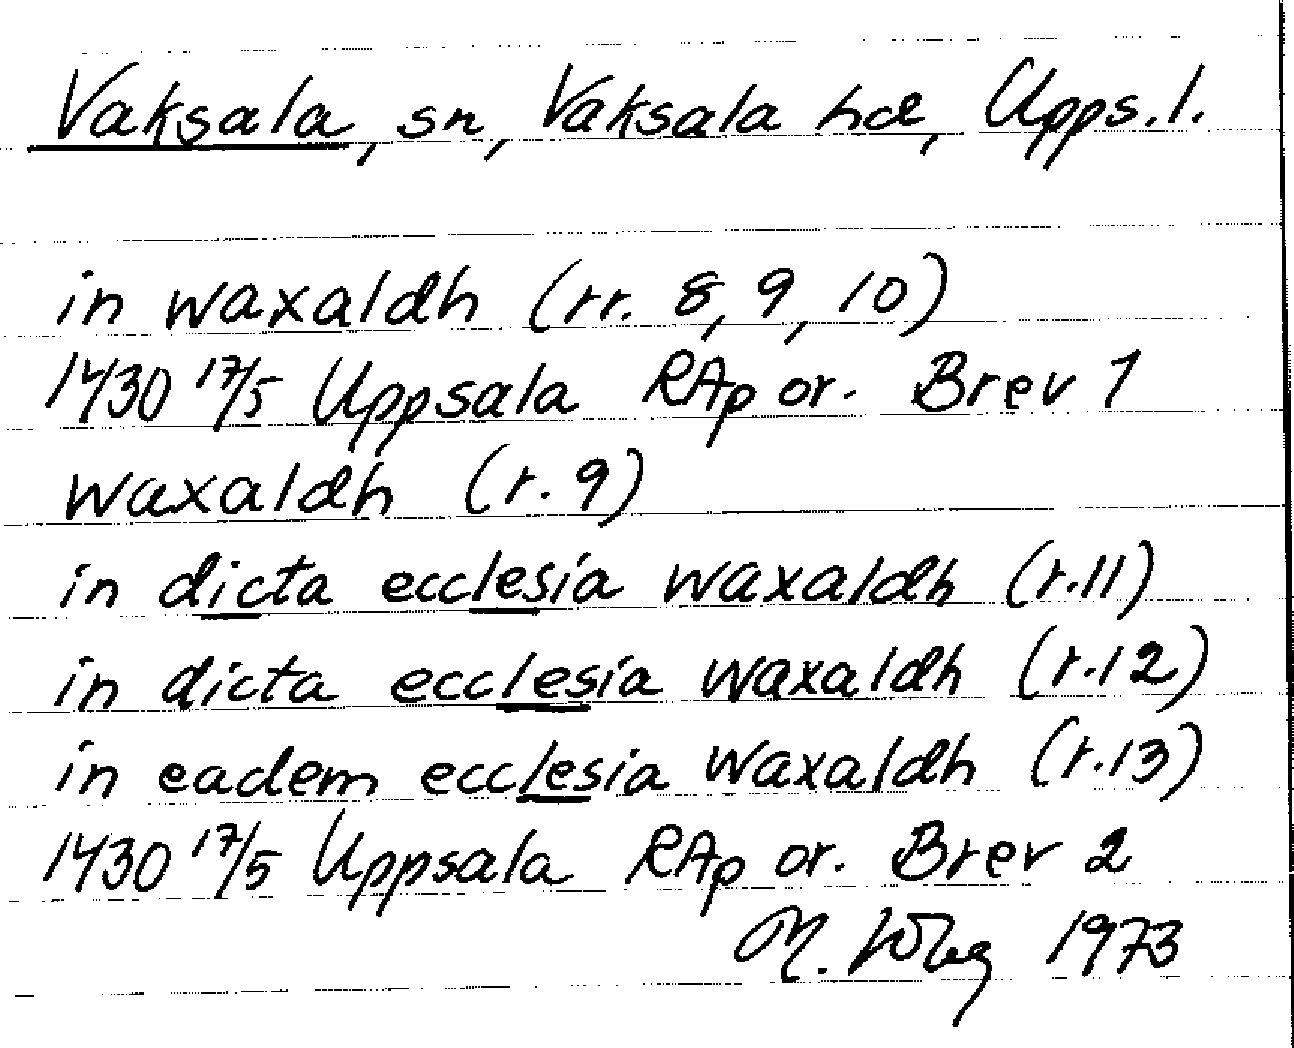 Vaksala, sn, Vaksala hd, Upps. l.
in waxaldh (rr. 8, 9, 10)
1430 17/5 Uppsala RAp or. Brev 1
waxaldh (r. 9)
in dicta ecclesia waxaldh (r. 11)
in dicta ecclesia waxaldh (r. 12)
in eadem ecclesia waxaldh (r. 13)
1430 17/5 Uppsala RAp or. Brev 2
M. 1973